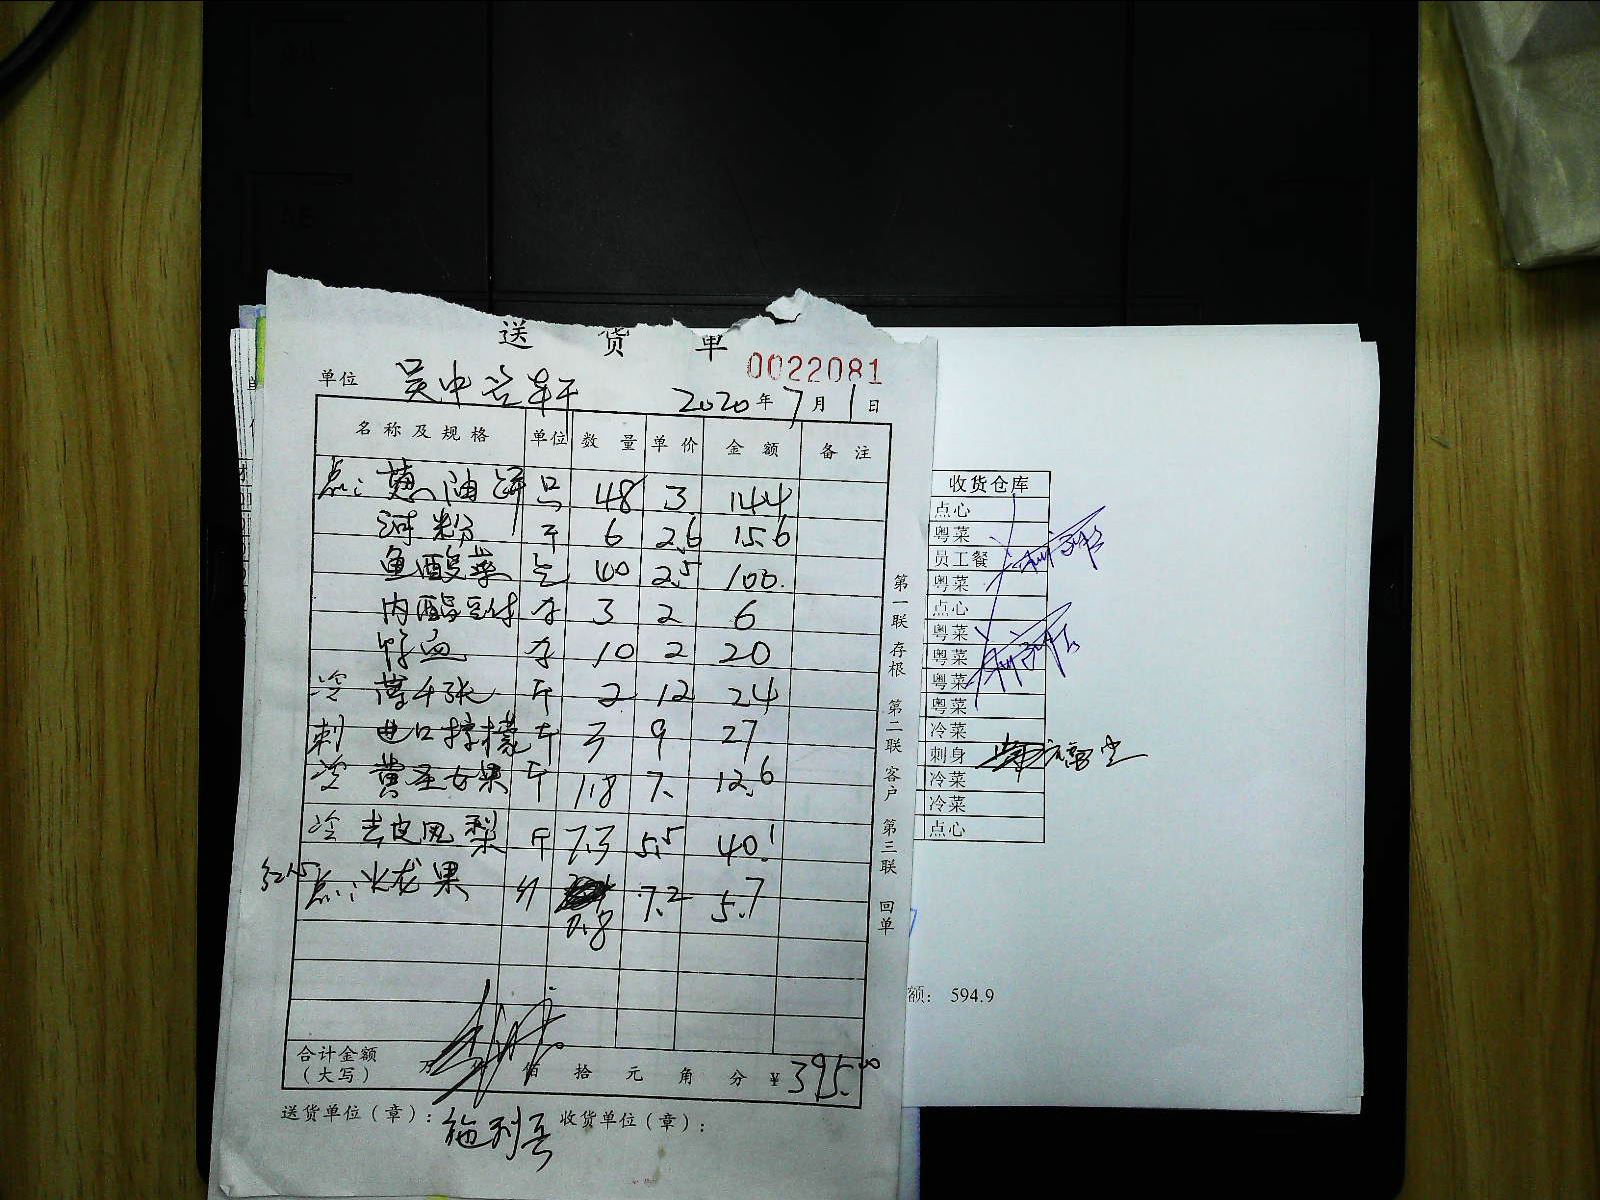 送 货 单
0022081
单位 吴中 2020年7月1日
名称及规格 单位 数量 单价 金额 备注
点: 油 只 48 3 144
河粉 斤 6 2.6 15.6
鱼酸菜 包 40 2.5 100.
内酯豆付 合 3 2 6
鸭血 合 10 2 20
冷 薄千张 斤 2 12 24
刺 进口柠檬 斤 3 9 27
冷 黄圣女果 斤 1.8 7. 12.6
冷 去皮凤梨 斤 7.3 5.5 40.1
红心 点: 火龙果 斤 0.8 7.2 5.7
合计金额
(大写) 万 佰 拾 元 角 分 ¥ 395.00
送货单位(章): 收货单位(章):
第一联 存根 第二联 客户 第三联 回单
收货仓库
点心
粤菜
员工餐
粤菜
点心
粤菜
粤菜
粤菜
粤菜
冷菜
刺身
冷菜
冷菜
点心
额: 594.9